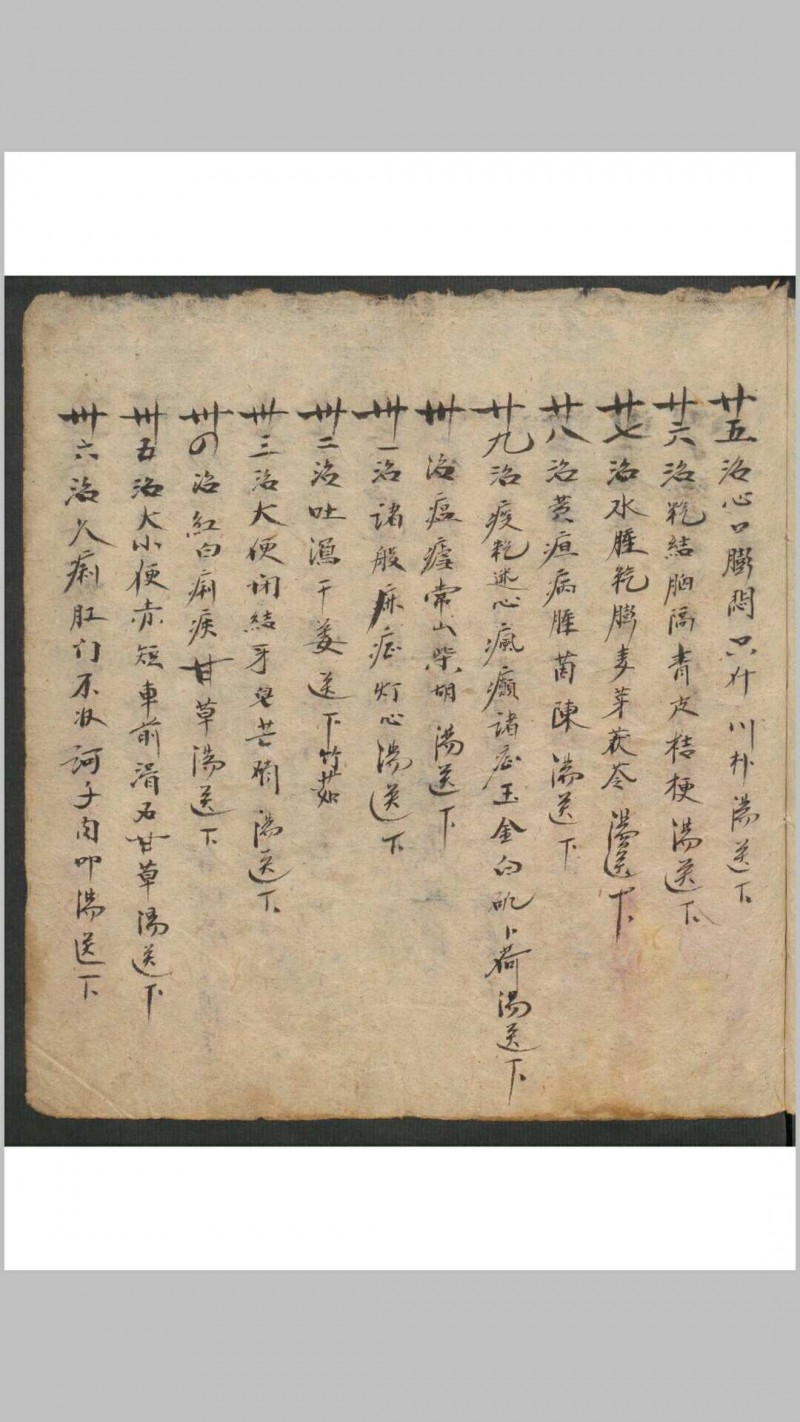 廿五治心口膨悶只壳川朴湯送下
廿六治乾結胸隔青皮桔梗湯送下
廿七治水腫乾膨麦芽茯苓湯送下
廿八治黃疸病腫茵陳湯送下
廿九治痰乾迷心瘋癲諸症玉金白矾卜荷湯送下
卅治瘟瘧常山柴胡湯送下
卅一治諸般麻症灯心湯送下
卅二治吐瀉干姜送下竹茹
卅三治大便闭結牙皂芒硝湯送下
卅四治紅白痢疾甘草湯送下
卅五治大小便赤短車前滑石甘草湯送下
卅六治久痢肛门不收訶子肉叩湯送下